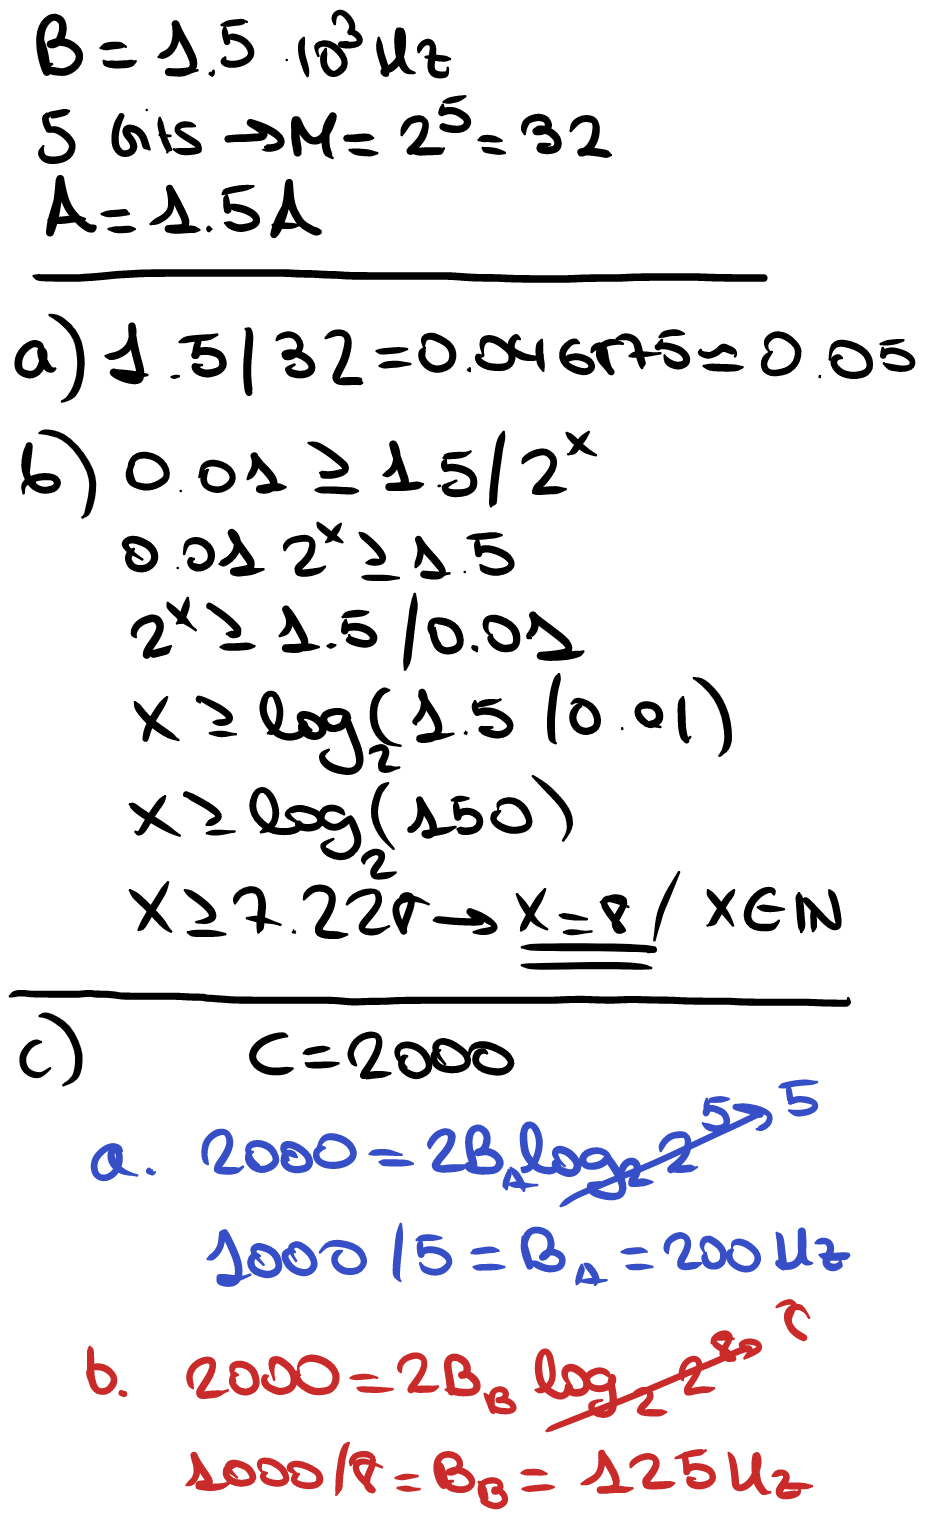 B = 1.5 · 10³ Hz
5 bits → M = 2⁵ = 32
A = 1.5A
a) 1.5/32 = 0.046875 ≃ 0.05
b) 0.01 ≥ 1.5/2ˣ
0.01 2ˣ ≥ 1.5
2ˣ ≥ 1.5/0.01
x ≥ log₂(1.5/0.01)
x ≥ log₂(150)
x ≥ 7.228 → x = 8 / x ∈ ℕ
c) C = 2000
a. 2000 = 2B_A log₂ 2⁵ → 5
1000/5 = B_A = 200 Hz
b. 2000 = 2B_B log₂ 2⁸ → 8
1000/8 = B_B = 125 Hz